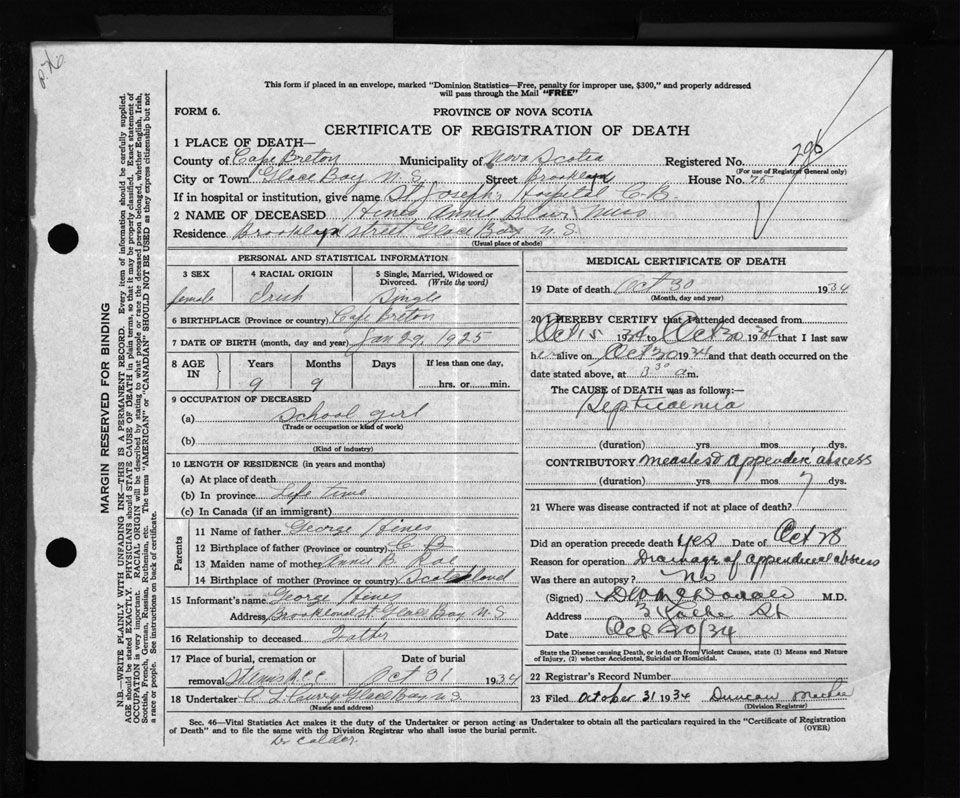 This form if placed in an envelope, marked "Dominion Statistics—Free, penalty for improper use, $300," and properly addressed
will pass through the Mail "FREE"
FORM 6. PROVINCE OF NOVA SCOTIA
CERTIFICATE OF REGISTRATION OF DEATH
1 PLACE OF DEATH—
County of Cape Breton Municipality of Nova Scotia Registered No. 296
(For use of Registrar General only)
City or Town Glace Bay N.S. Street Brooklyn House No. 75
If in hospital or institution, give name St Joseph's Hospital C.B.
2 NAME OF DECEASED Hines Annie Blair Miss
Residence Brooklyn street Glace Bay N.S.
(Usual place of abode)
PERSONAL AND STATISTICAL INFORMATION
3 SEX 4 RACIAL ORIGIN 5 Single, Married, Widowed or Divorced. (Write the word)
female Irish Single
6 BIRTHPLACE (Province or country) Cape Breton
7 DATE OF BIRTH (month, day and year) Jan 29, 1925
8 AGE IN Years Months Days If less than one day,
9 9 hrs. or min.
9 OCCUPATION OF DECEASED
(a) School girl
(Trade or occupation or kind of work)
(b)
(Kind of industry)
10 LENGTH OF RESIDENCE (in years and months)
(a) At place of death
(b) In province Life time
(c) In Canada (if an immigrant)
Parents
11 Name of father George Hines
12 Birthplace of father (Province or country) C B
13 Maiden name of mother Annie B.
14 Birthplace of mother (Province or country) Scotland
15 Informant's name George Hines
Address Glace Bay N.S
16 Relationship to deceased Father
17 Place of burial, cremation or removal Date of burial
Oct 31 1934
18 Undertaker Curry Glace Bay N.S
(Name and address)
MEDICAL CERTIFICATE OF DEATH
19 Date of death Oct 30 1934
(Month, day and year)
20 I HEREBY CERTIFY that I attended deceased from
Oct 15 1934 to Oct 30 1934 that I last saw
her alive on Oct 30 1934 and that death occurred on
date stated above, at 3 30 a m.
The CAUSE of DEATH was as follows:—
Septicaemia
(duration) yrs. mos. dys.
CONTRIBUTORY measles & appendix abscess
(duration) yrs. mos. 7 dys.
21 Where was disease contracted if not at place of death?
Did an operation precede death yes Date of Oct 28
Reason for operation Drainage of appendiceal abscess
Was there an autopsy? No
(Signed) M.D.
Address St
Date Oct 30/34
State the Disease causing Death, or in death from Violent Causes, state (1) Means and Nature
of Injury, (2) whether Accidental, Suicidal or Homicidal.
22 Registrar's Record Number
23 Filed October 31 1934 Duncan
(Division Registrar)
Sec. 46—Vital Statistics Act makes it the duty of the Undertaker or person acting as Undertaker to obtain all the particulars required in the "Certificate of Registration
of Death" and to file the same with the Division Registrar who shall issue the burial permit. (OVER)
Dr Calder.
MARGIN RESERVED FOR BINDING
N.B.—WRITE PLAINLY WITH UNFADING INK—THIS IS A PERMANENT RECORD. Every item of information should be carefully supplied.
AGE should be stated EXACTLY. PHYSICIANS should STATE CAUSE OF DEATH in plain terms, so that it may be properly classified. Exact statement of
OCCUPATION is very important. RACIAL ORIGIN will be described by stating to what people or race the deceased person belonged, whether English, Irish,
Scottish, French, German, Russian, Ruthenian, etc. The terms "AMERICAN" or "CANADIAN" SHOULD NOT BE USED as they express citizenship but not
a race or people. See instructions on back of certificate.